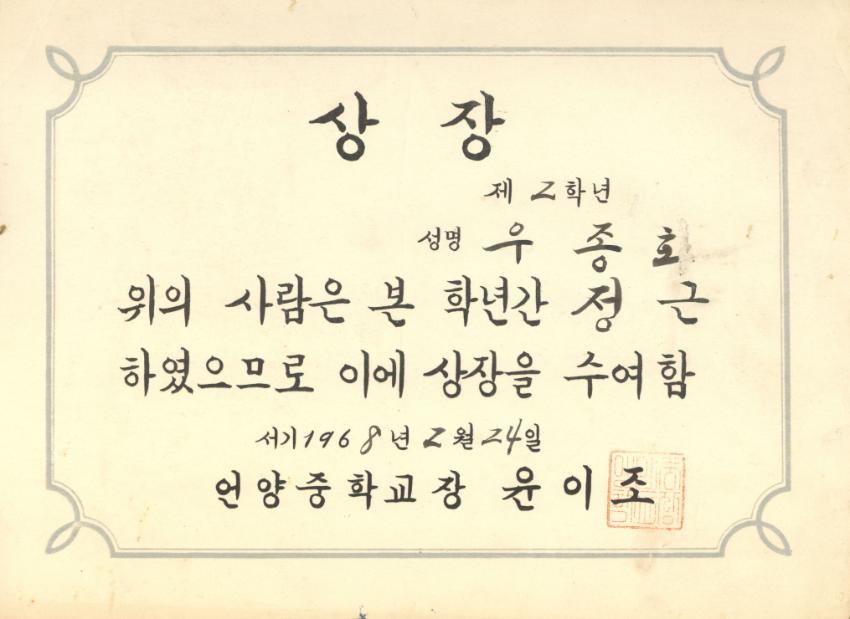 상 장
제 2학년
성명 우 종 호
위의 사람은 본 학년간 정 근
하였으므로 이에 상장을 수여함
서기1968년 2월 24일
언양중학교장 윤이조